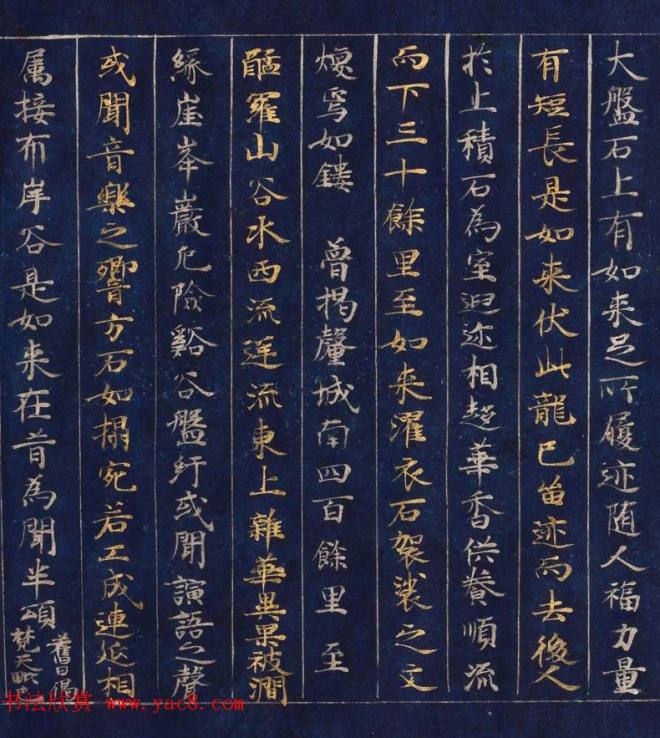 大盤石上有如来足所履迹随人福力量
有短長是如来伏此龍已留迹而去後人
扵上積石為室遐迩相趍華香供養順流
而下三十餘里至如来濯衣石袈裟之文
煥焉如鏤 曾掲釐城南四百餘里至
醯羅山谷水西流逆流東上雜華異果被澗
緣崖峯巖危險谿谷盤紆或聞諠語之聲
或聞音樂之響方石如榻宛若工成連延相
属接布岸谷是如来在昔為聞半頌
舊曰偈
梵天
书法欣赏 www.yac8.com